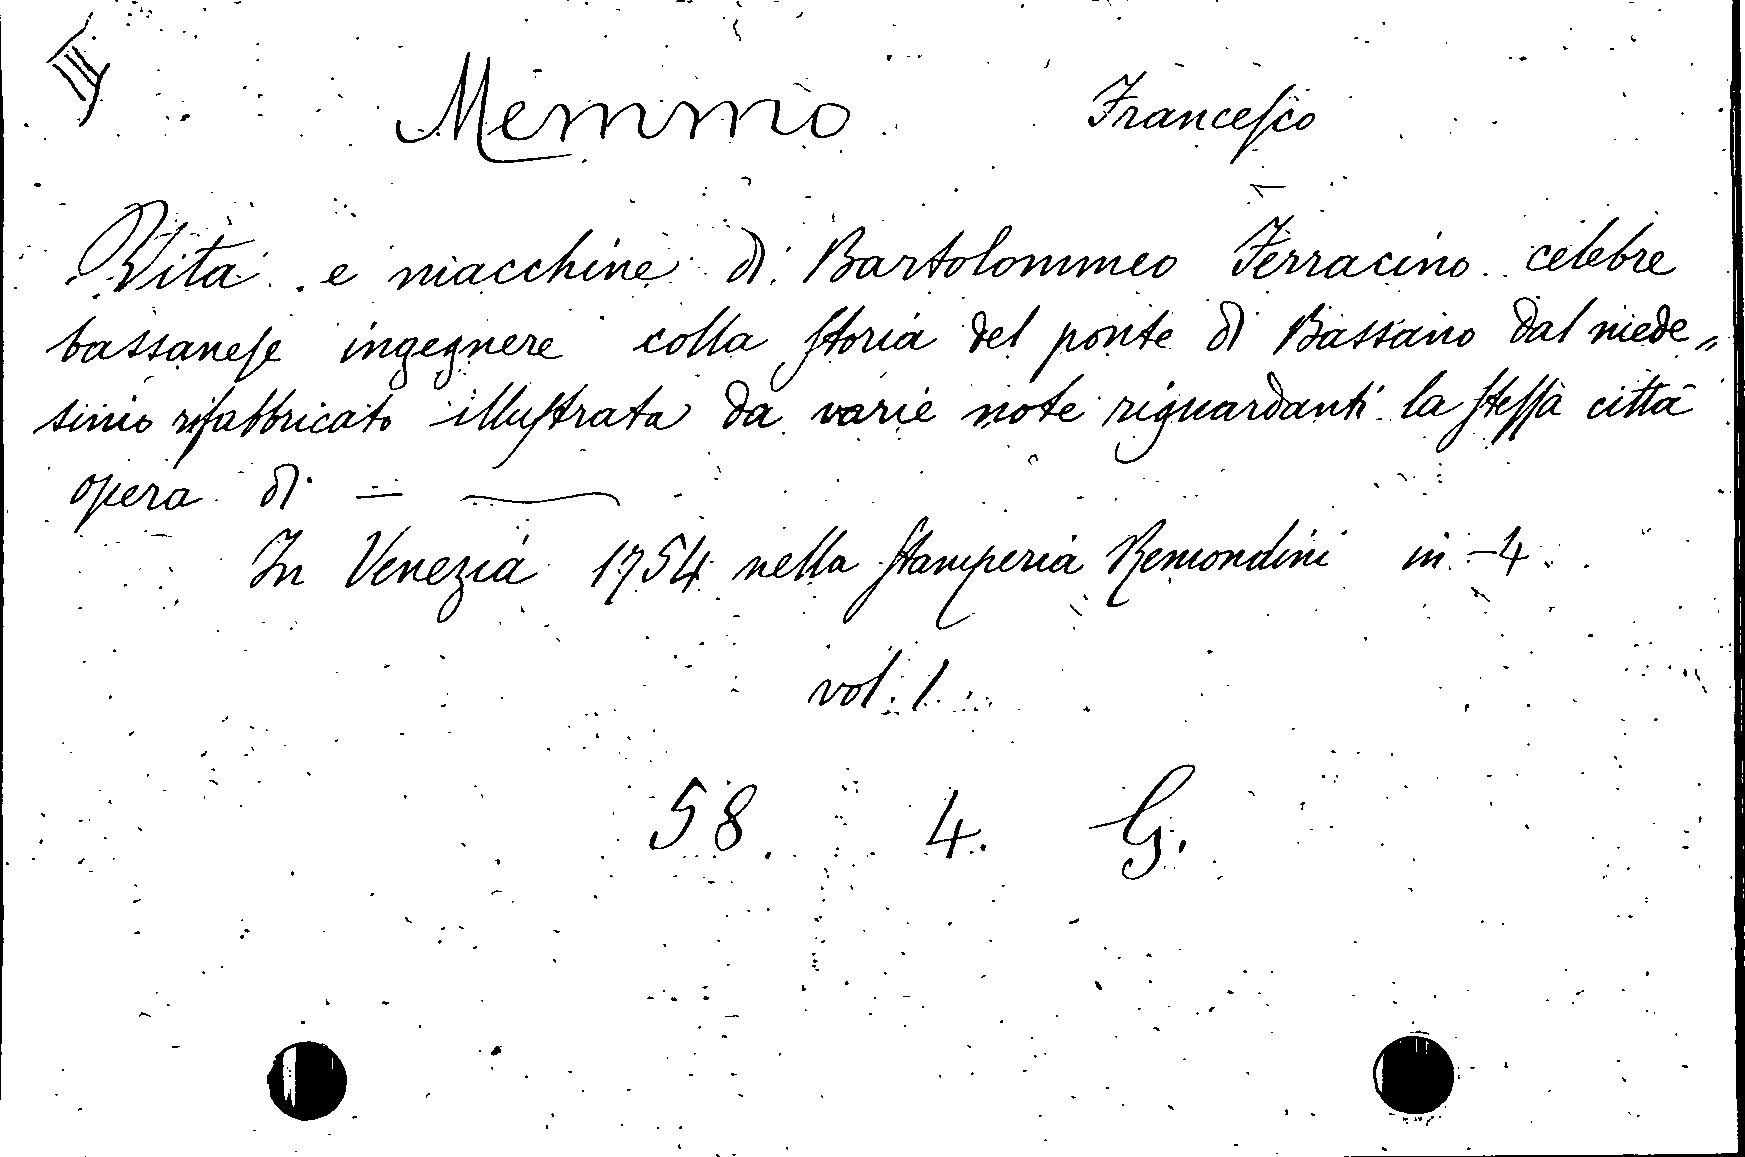 III
Memmo Francesco
Vita e macchine di Bartolommeo Ferracino celebre
bassanese ingegnere colla storia del ponte di Bassano dal mede„
simo rifabbricato illustrata da varie note riguardanti la stessa città
opera di — —
In Venezia 1754 nella stamperia Remondini in-4.
vol. 1
58. 4. G.